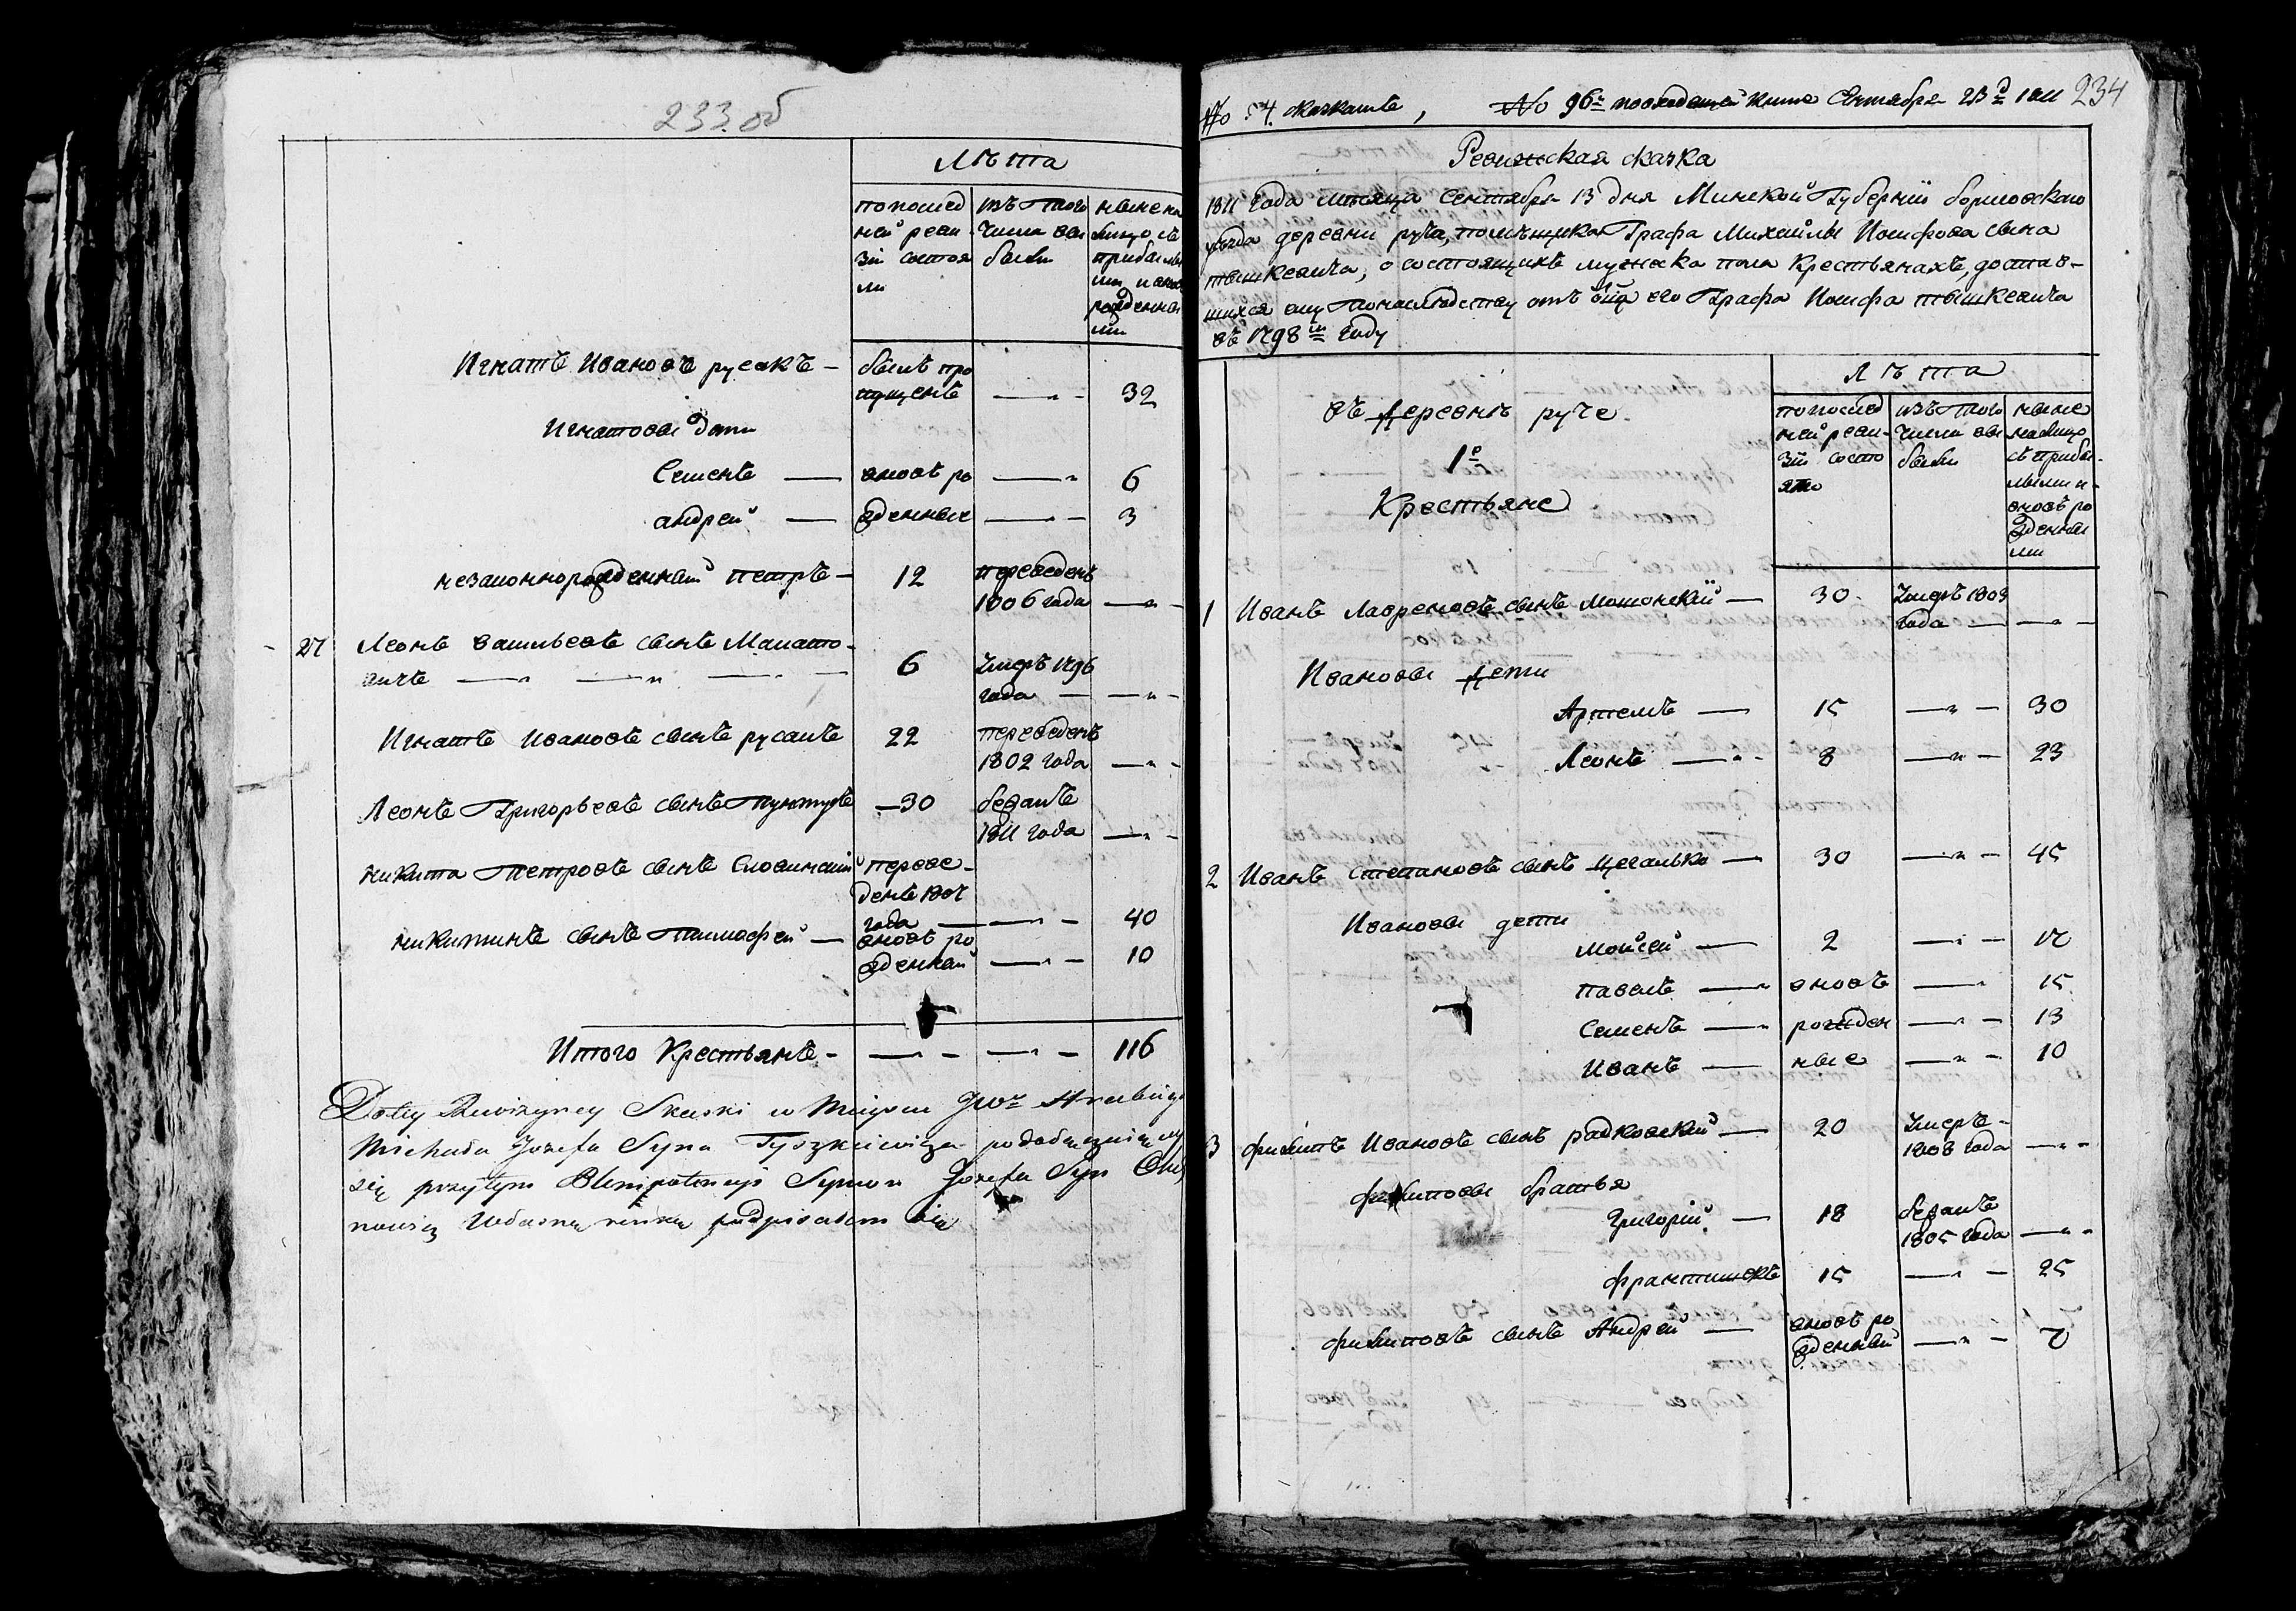 233 об
Лѣта
попослед
ней реви
зіи состоя
ли
изъ того
числа вы
было
ныне на
лицо съ
прибылы
ми и вновь
рожденны
ми
Игнатъ Ивановъ русакъ —
былъ про
пущенъ — „ — 32
Игнатовы дети
Семенъ — вновь ро — „ 6
андрей — жденные — „ — 3
незаконнорожденный петръ — 12 переведенъ
1806 года — „ —
27 Леонъ васильевъ сынъ
— „ — „ — 6 Умеръ 1796
года — — „ —
Игнатъ Ивановъ сынъ русакъ 22 переведенъ
1802 года — „ —
Леонъ Григорьевъ сынъ — 30 бежалъ
1811 года — „ —
никита Петровъ сынъ переве-
денъ 1807
года — — „ — 40
никитинъ сынъ тимофей — вновь ро
жденный — „ — 10
Итого Крестьянъ — — „ — — „ — 116
Do tey Rewizyney Skaski w Mieyscu JWo Hrabiego
Michała Jozefa Syna Tyszkiewicza
się przytym Plenipotencyi Symon Jozefa Syn
własną ręką podpisałem się
No 54. сказкамъ, No 96й поовходящей книге Сентября 23д 1811 234
Ревижская сказка
1811 года месяца Сентября 13 дня Минской Губерніи борисовскаго
уезда деревни руча, помѣщика Графа Михайлы Иосифова сына
тышкевича, о состоящихъ мужска пола Крестьянахъ, достав-
шихся ему Понаследству отъ отца его Графа Иосифа тышкевича
въ 1798м году
въ деревнѣ руче
1е
Крестьяне
Лѣта
попослед
ней реви-
зіи состо
яло
изъ того
числа вы
было
ныне
налицо
съ прибы-
лыми и
вновь ро
жденны
ми
1 Иванъ Лавреновъ сынъ — 30 Умеръ 1809
года — — „ —
Ивановы дети
Артемъ — 15 — „ — 30
Леонъ — „ - 8 — „ — 23
2 Иванъ Степановъ сынъ Цегалько — 30 — „ — 45
Ивановы дети
мойсей — 2 — „ — 17
павелъ — вновь — „ 15
Семенъ — рожден — „ — 13
Иванъ — ные — „ — 10
3 филипъ Ивановъ сынъ радковский — 20 Умеръ -
1808 года — „ -
филиповы братья
Григорій — 18 бежалъ
1805 года — „ -
францишекъ 15 — „ — 25
филиповъ сынъ Андрей — вновь ро
жденный — „ — 7